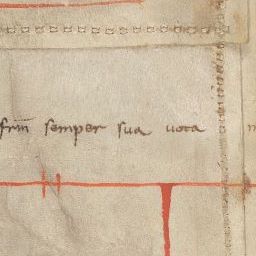 semper sua uota